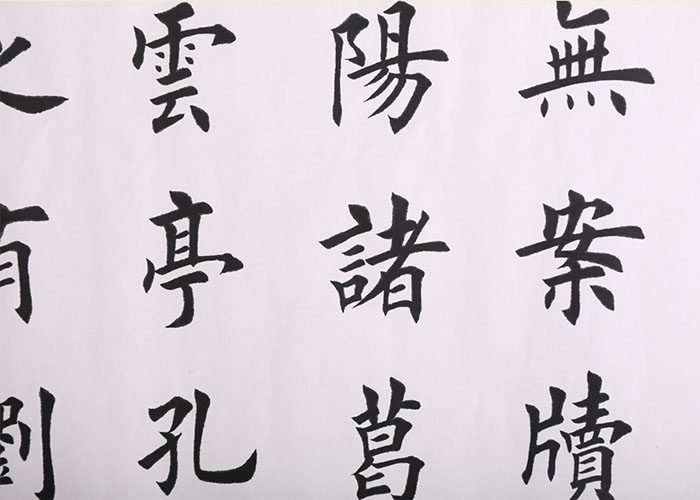 無案牘
陽諸葛
雲亭孔
之有劉